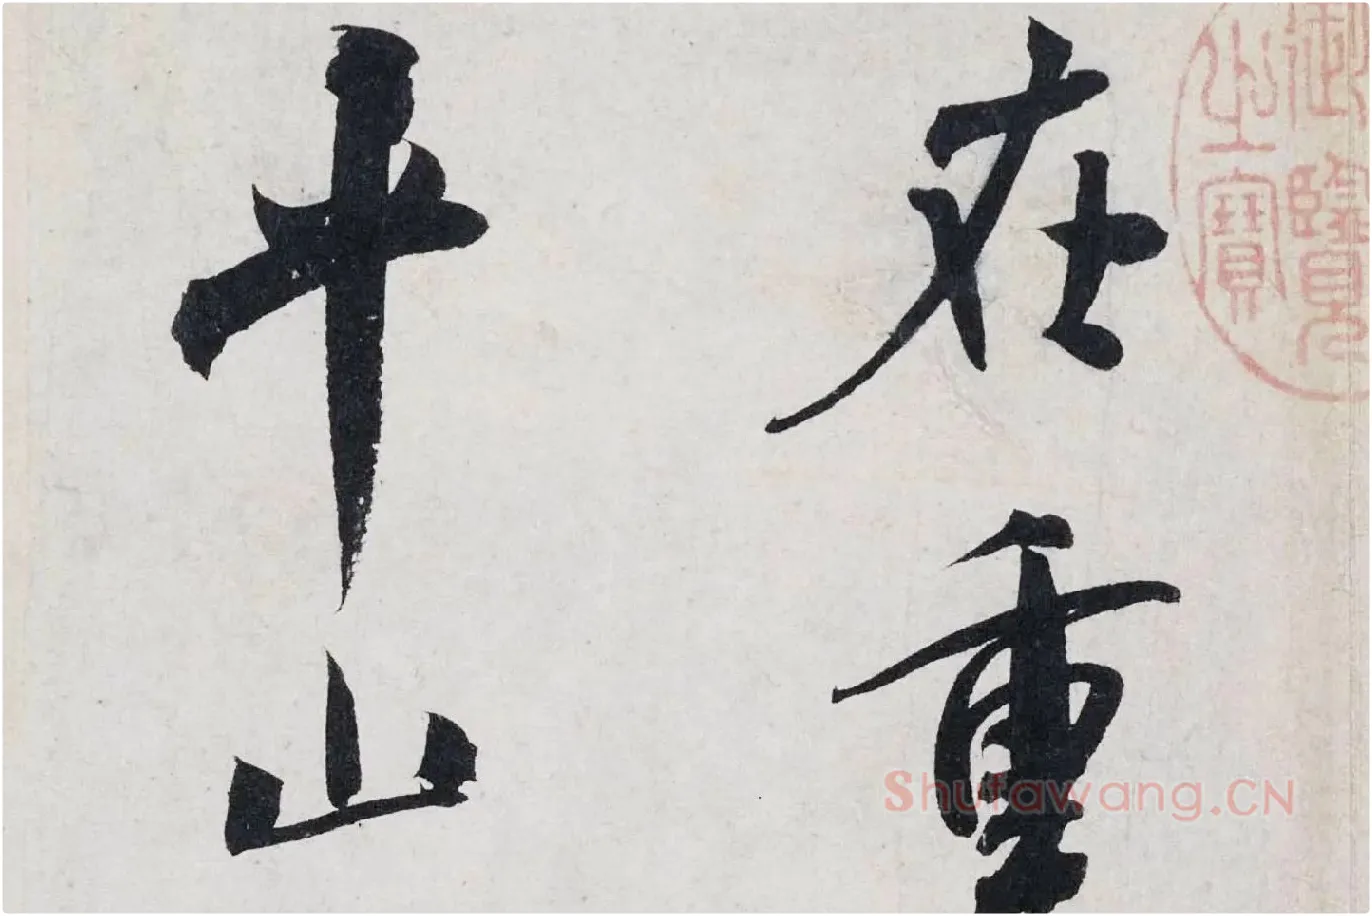 在重
平山
御覽
之寶
Shufawang.CN